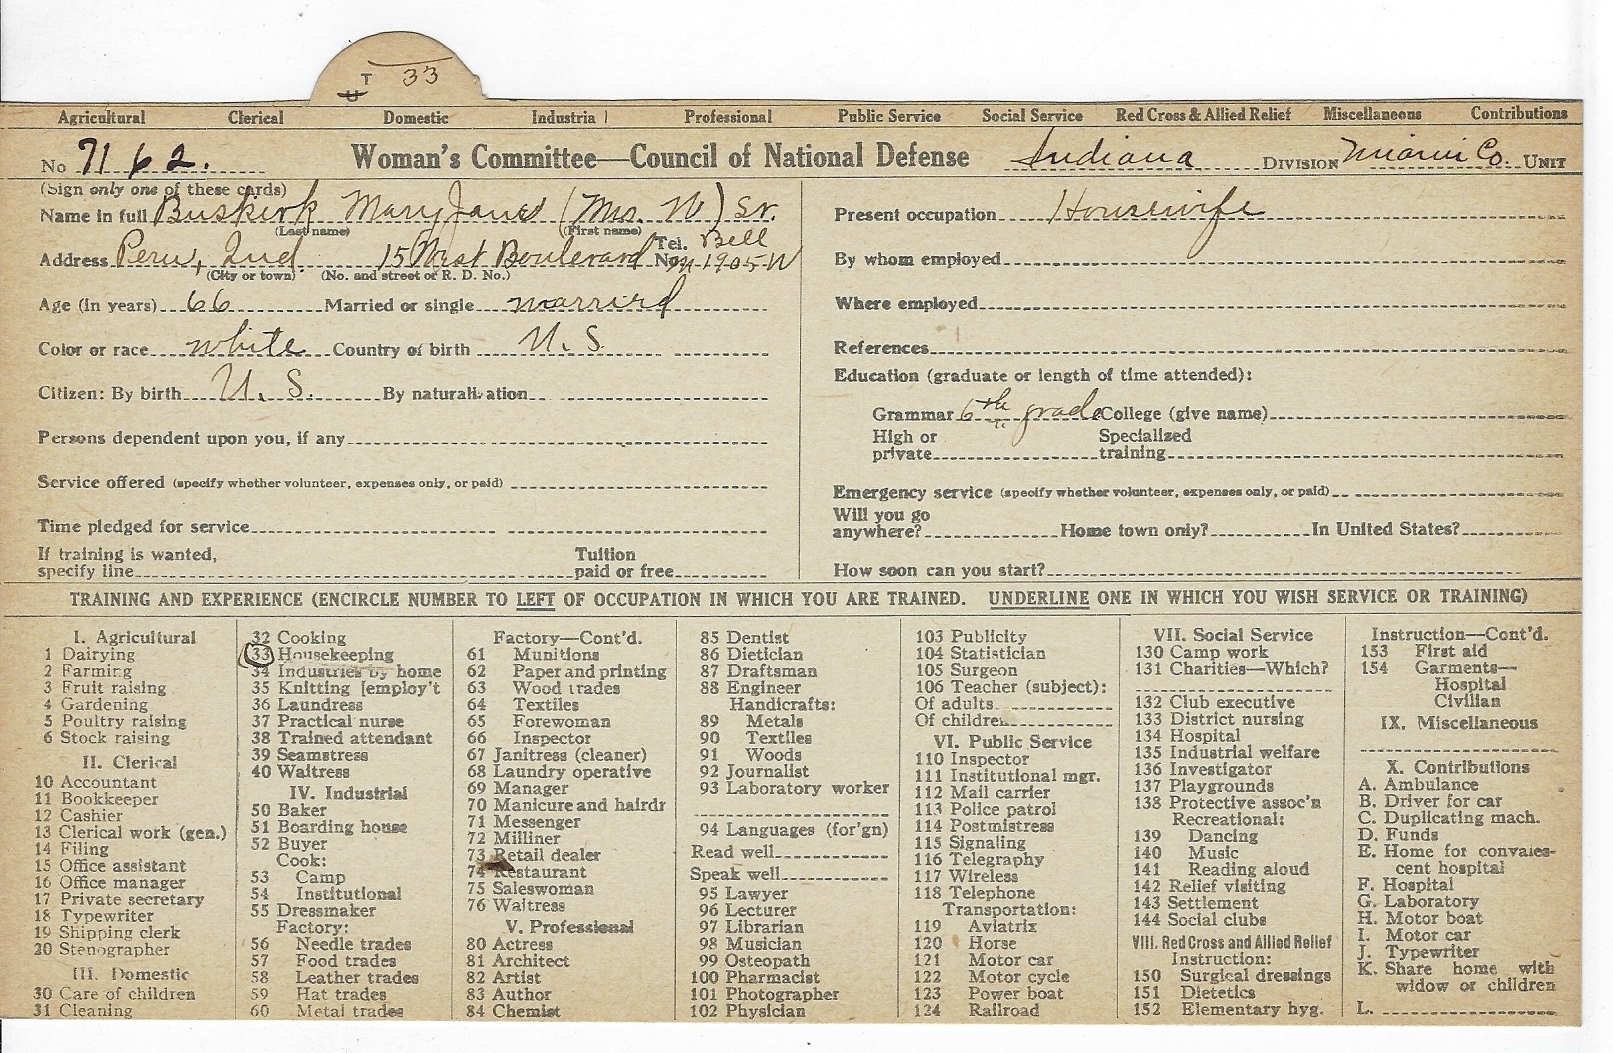 T 33
U
Agricultural Clerical Domestic Industrial Professional Public Service Social Service Red Cross & Allied Relief Miscellaneous Contributions
No 7162. Woman's Committee—Council of National Defense Indiana DIVISION Miami Co. UNIT
(Sign only one of these cards)
Name in full Buskirk Mary Jane (Mrs. W) Sr.
(Last name) (First name)
Address Peru, Ind. 15 West Boulevard Tel. No. Bell M-1905-W
(City or town) (No. and street or R. D. No.)
Age (in years) 66 Married or single married
Color or race white Country of birth U. S.
Citizen: By birth U. S. By naturalization
Persons dependent upon you, if any
Service offered (specify whether volunteer, expenses only, or paid)
Time pledged for service
If training is wanted,
specify line Tuition paid or free
Present occupation Housewife
By whom employed
Where employed
References
Education (graduate or length of time attended):
Grammar 6th grade College (give name)
High or private Specialized training
Emergency service (specify whether volunteer, expenses only, or paid)
Will you go
anywhere? Home town only? In United States?
How soon can you start?
TRAINING AND EXPERIENCE (ENCIRCLE NUMBER TO LEFT OF OCCUPATION IN WHICH YOU ARE TRAINED. UNDERLINE ONE IN WHICH YOU WISH SERVICE OR TRAINING)
I. Agricultural
1 Dairying
2 Farming
3 Fruit raising
4 Gardening
5 Poultry raising
6 Stock raising
II. Clerical
10 Accountant
11 Bookkeeper
12 Cashier
13 Clerical work (gen.)
14 Filing
15 Office assistant
16 Office manager
17 Private secretary
18 Typewriter
19 Shipping clerk
20 Stenographer
III. Domestic
30 Care of children
31 Cleaning
32 Cooking
33 Housekeeping
34 Industries by home
35 Knitting [employ't
36 Laundress
37 Practical nurse
38 Trained attendant
39 Seamstress
40 Waitress
IV. Industrial
50 Baker
51 Boarding house
52 Buyer
Cook:
53 Camp
54 Institutional
55 Dressmaker
Factory:
56 Needle trades
57 Food trades
58 Leather trades
59 Hat trades
60 Metal trades
Factory—Cont'd.
61 Munitions
62 Paper and printing
63 Wood trades
64 Textiles
65 Forewoman
66 Inspector
67 Janitress (cleaner)
68 Laundry operative
69 Manager
70 Manicure and hairdr
71 Messenger
72 Milliner
73 Retail dealer
74 Restaurant
75 Saleswoman
76 Waitress
V. Professional
80 Actress
81 Architect
82 Artist
83 Author
84 Chemist
85 Dentist
86 Dietician
87 Draftsman
88 Engineer
Handicrafts:
89 Metals
90 Textiles
91 Woods
92 Journalist
93 Laboratory worker
94 Languages (for'gn)
Read well
Speak well
95 Lawyer
96 Lecturer
97 Librarian
98 Musician
99 Osteopath
100 Pharmacist
101 Photographer
102 Physician
103 Publicity
104 Statistician
105 Surgeon
106 Teacher (subject):
Of adults
Of children
VI. Public Service
110 Inspector
111 Institutional mgr.
112 Mail carrier
113 Police patrol
114 Postmistress
115 Signaling
116 Telegraphy
117 Wireless
118 Telephone
Transportation:
119 Aviatrix
120 Horse
121 Motor car
122 Motor cycle
123 Power boat
124 Railroad
VII. Social Service
130 Camp work
131 Charities—Which?
132 Club executive
133 District nursing
134 Hospital
135 Industrial welfare
136 Investigator
137 Playgrounds
138 Protective assoc'n
Recreational:
139 Dancing
140 Music
141 Reading aloud
142 Relief visiting
143 Settlement
144 Social clubs
VIII. Red Cross and Allied Relief
Instruction:
150 Surgical dressings
151 Dietetics
152 Elementary hyg.
Instruction—Cont'd.
153 First aid
154 Garments—
Hospital
Civilian
IX. Miscellaneous
X. Contributions
A. Ambulance
B. Driver for car
C. Duplicating mach.
D. Funds
E. Home for convales-
cent hospital
F. Hospital
G. Laboratory
H. Motor boat
I. Motor car
J. Typewriter
K. Share home with
widow or children
L.